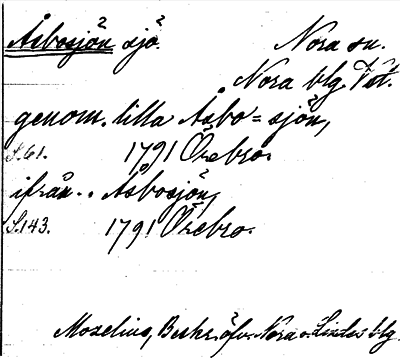 Åsbosjön sjö. Nora sn.
Nora blg. Vstl.
genom. lilla Åsbo=sjön,
S.61. 1791 Örebro.
ifrån . . Åsbosjön,
S.143. 1791 Örebro.
Moselius, Beskr. öfv. Nora o. Lindes blg